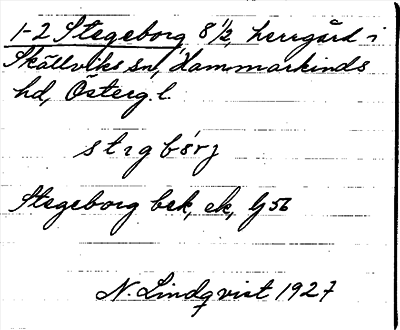 1-2 Stegeborg 8 1/2, herrgård i
Skällviks sn, Hammarkinds
hd, Österg. l.
stegbórj
Stegeborg bek, ek, G 56
N. Lindqvist 1927